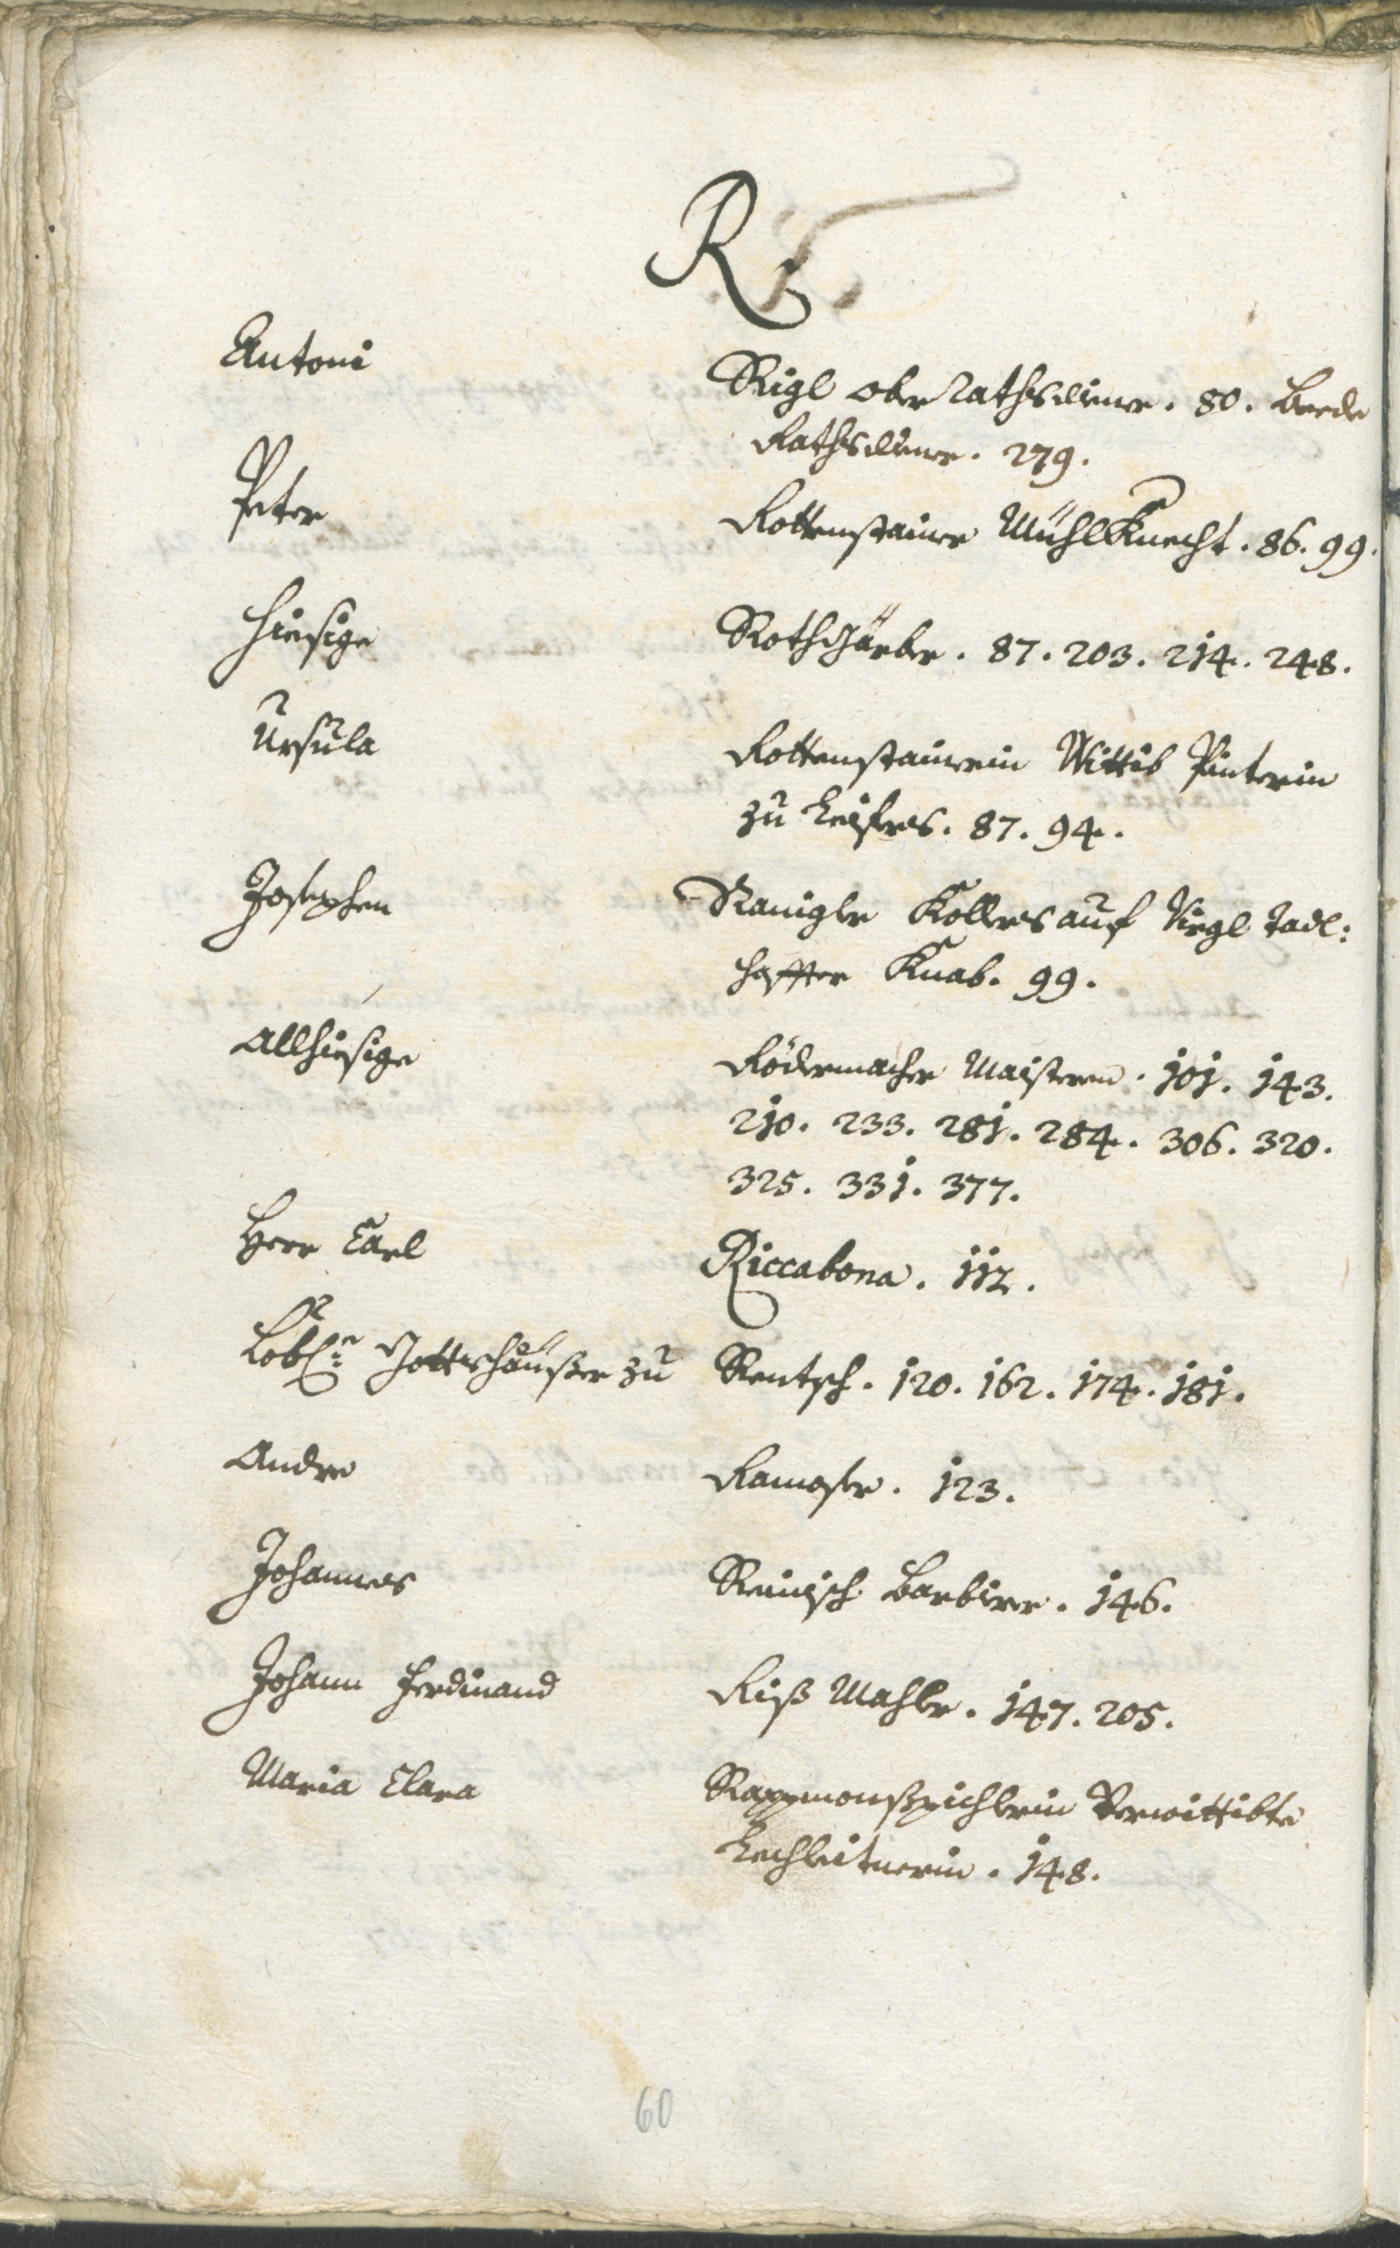 R.
Antoni Rigl ober Rathsdiener. 80. beede
Rathsdiener. 279.
Peter Rottenstainer Mühlknecht. 86. 99.
Hiesige Rothgärber. 87. 203. 214. 248.
Ursula Rottenstainerin Wittib Pinterin
zu Leifers. 87. 94.
Josephen Ranigler Kollers auf Virgl tadl:
haffter Knab. 99.
Allhiesige Rödermacher Maistern. 101. 143.
210. 233. 281. 284. 306. 320.
325. 331. 377.
Herr Carl Riccabona. 112.
Lobl: Gottshäußer zu Rentsch. 120. 162. 174. 181.
Andre Ramoser. 123.
Johannes Reinisch Barbierer. 146.
Johann Ferdinand Riß Mahler. 147. 205.
Maria Clara Rappmonßpichlerin Verwittibte
Lechleitnerin. 148.
60